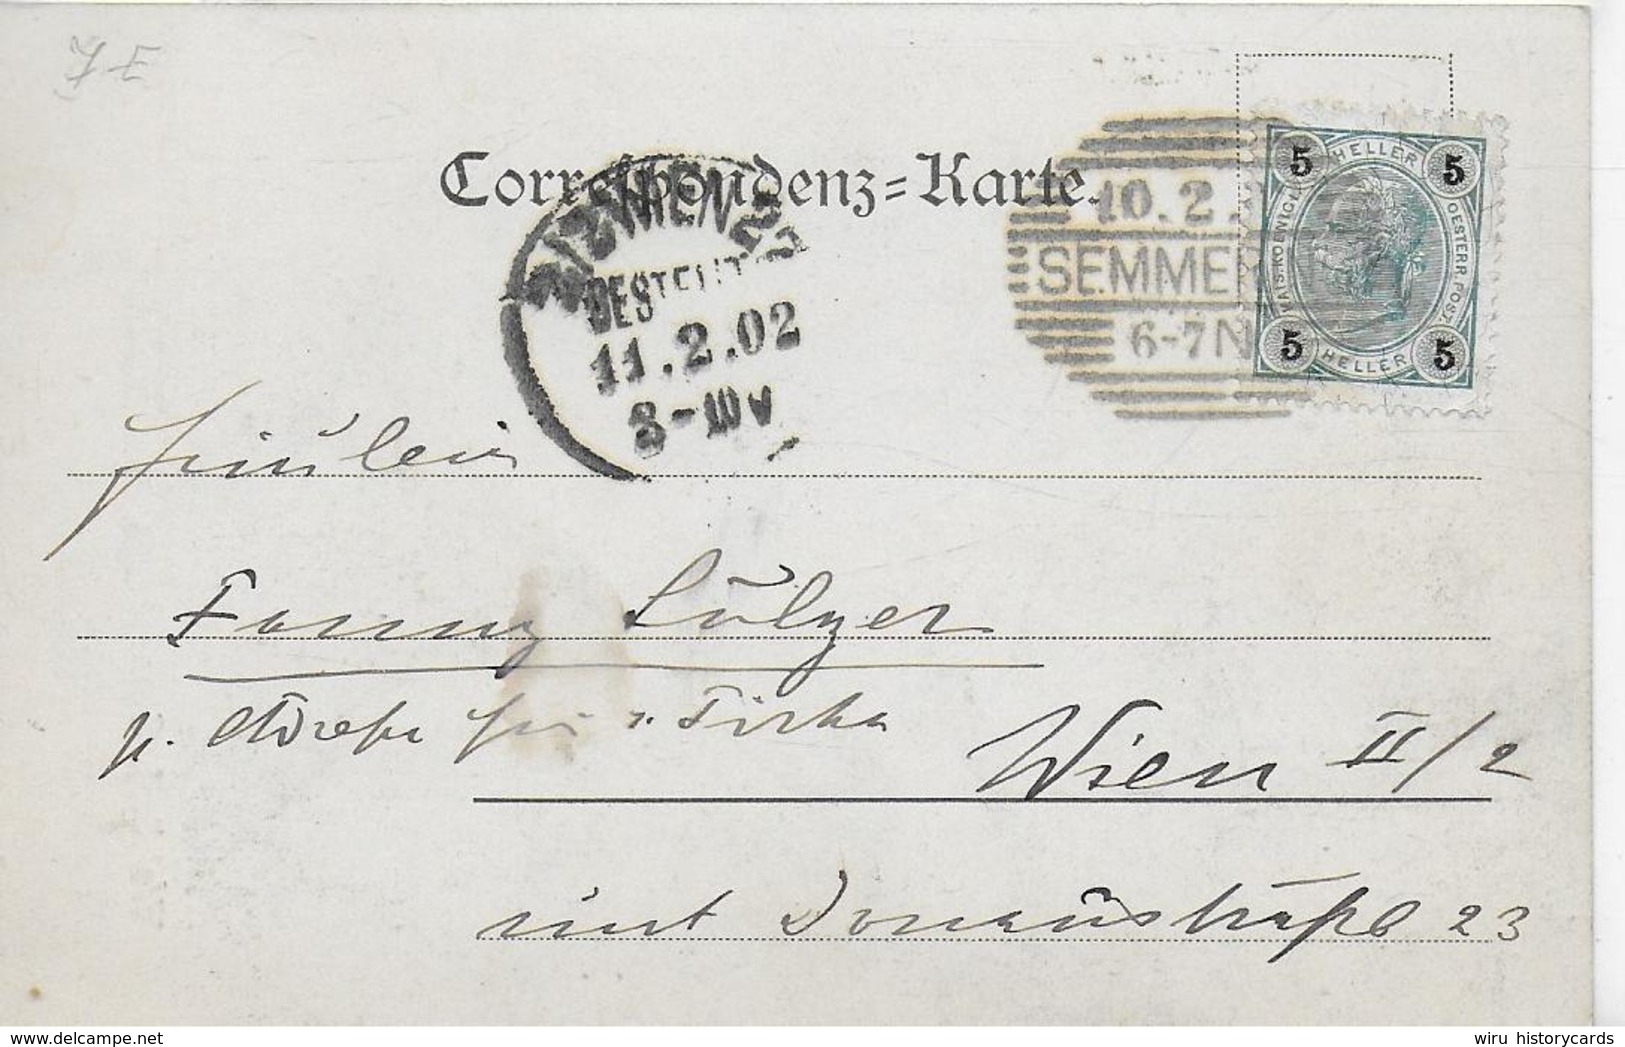 7 E
Correspondenz=Karte.
10.2.
SEMMER
6-7N
5 HELLER 5
KAIS. KOENIGL.
OESTERR. POST
5 HELLER 5
2/2 WIEN 2
BESTELLT
11.2.02
8-10 V
Fräulein
Fanny Sulzer
p. Adresse
Wien II/2
Donaustraße 23
wiru historycards